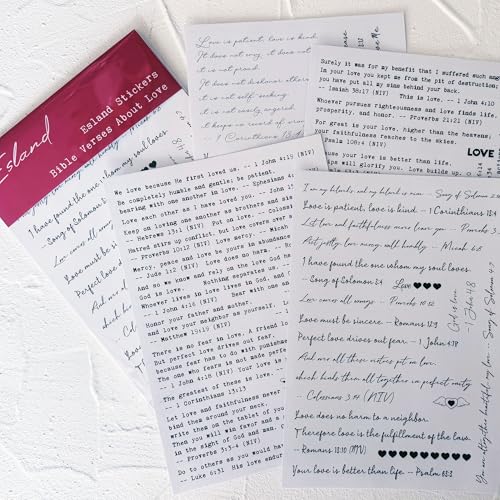 Esland
Esland Stickers
Bible Verses About Love
I have found the one whom my soul loves.
Song of Solomon
Love covers all
Love must be
Perfect love
And
Love does
Therefore
Love is patient, love is kind.
It does not envy, it does not
it is not proud.
It does not dishonor others
it is not self-seeking
it is not easily angered
it keeps no record of
Surely it was for my benefit that I suffered such
In your love you kept me from the pit of destruction;
you have put all my sins behind your back.
-- Isaiah 38:17 (NIV)
This is love. -- 1 John 4:10
Whoever pursues righteousness and love finds life,
prosperity, and honor. -- Proverbs 21:21 (NIV)
For great is your love, higher than the heavens;
your faithfulness reaches to the skies.
-- Psalm 108:4 (NIV)
your love is better than life,
lips will glorify you. Love builds up.
LOVE
We love because He first loved us. -- 1 John 4:19 (NIV)
Be completely humble and gentle; be patient,
bearing with one another in love. -- Ephesians
Love each other as I have loved you.
Keep on loving one another as brothers and
-- Hebrews 13:1 (NIV)
Hatred stirs up conflict, but love covers over
-- Proverbs 10:12 (NIV) Love mercy. -- Micah
Mercy, peace and love be yours in abundance
-- Jude 1:2 (NIV) Love does no harm.
And so we know and rely on the love God
God is love. Nothing separates us.
Whoever lives in love lives in God, and
-- 1 John 4:16 (NIV) Bear with one
Honor your father and mother,
and love your neighbor as yourself.
-- Matthew 19:19 (NIV)
There is no fear in love. A friend
But perfect love drives out fear,
because fear has to do with punishment
The one who fears is not made perfect
-- 1 John 4:18 (NIV) Your love is
The greatest of these is love.
-- 1 Corinthians 13:13
Let love and faithfulness never
bind them around your neck,
write them on the tablet of your
Then you will win favor and a
in the sight of God and man.
-- Proverbs 3:3-4 (NIV)
Do to others as you would have
-- Luke 6:31 His love endures
I am my beloveds and my beloved is mine. - Song of Solomon
Love is patient, love is kind. - 1 Corinthians 13:4
Let love and faithfulness never leave you. - Proverbs 3
Act justly, love mercy, walk humbly. - Micah 6:8
I have found the one whom my soul loves.
- Song of Solomon 3:4
Love
Love covers all wrongs. - Proverbs 10:12
Love must be sincere. - Romans 12:9
Perfect love drives out fear. - 1 John 4:18
And over all these virtues put on love,
which binds them all together in perfect unity.
- Colossians 3:14 (NIV)
Love does no harm to a neighbor.
Therefore love is the fulfillment of the law.
- Romans 13:10 (NIV)
Your love is better than life. - Psalm 63:3
God is love. - 1 John 4:8
You are altogether beautiful, my love. - Song of Solomon 4:7